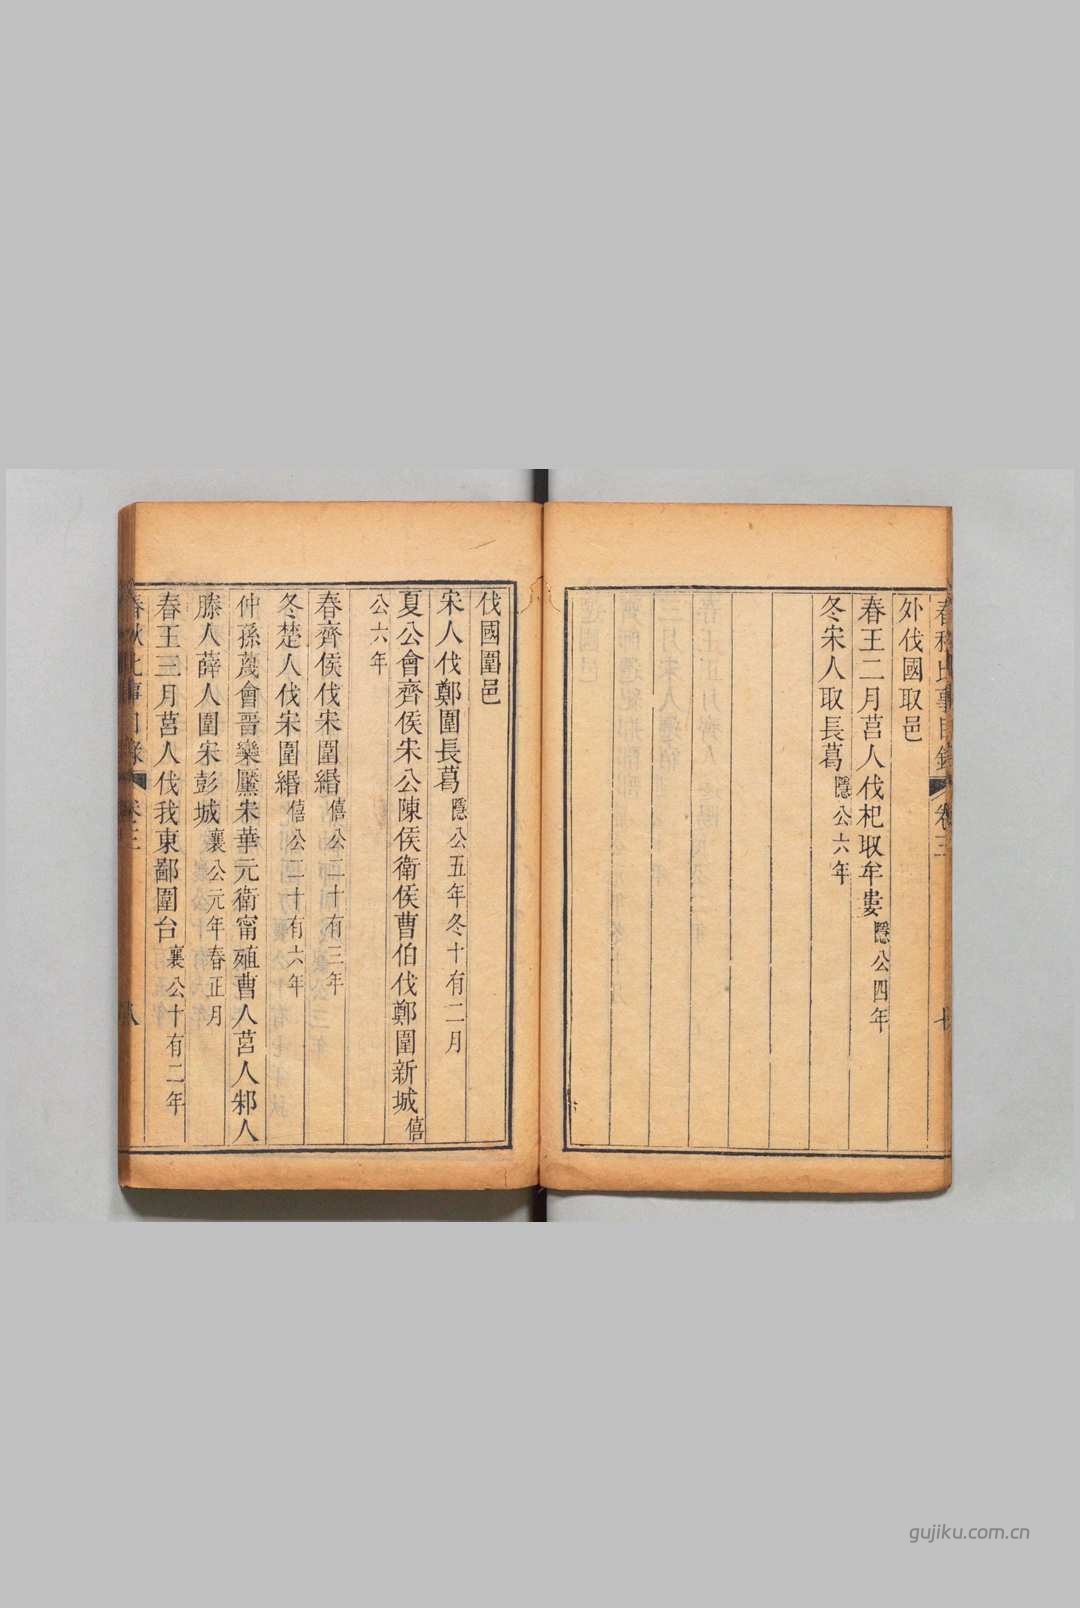 春秋比事目錄 卷三
外伐國取邑
春王二月莒人伐杞取牟婁 隱公四年
冬宋人取長葛 隱公六年
伐國圍邑
宋人伐鄭圍長葛 隱公五年冬十有二月
夏公會齊侯宋公陳侯衛侯曹伯伐鄭圍新城 僖
公六年
春齊侯伐宋圍緡 僖公二十有三年
冬楚人伐宋圍緡 僖公二十有六年
仲孫蔑會晉欒黶宋華元衛甯殖曹人莒人邾人
滕人薛人圍宋彭城 襄公元年春正月
春王三月莒人伐我東鄙圍台 襄公十有二年
春秋比事目錄 卷三 八
gujiku.com.cn